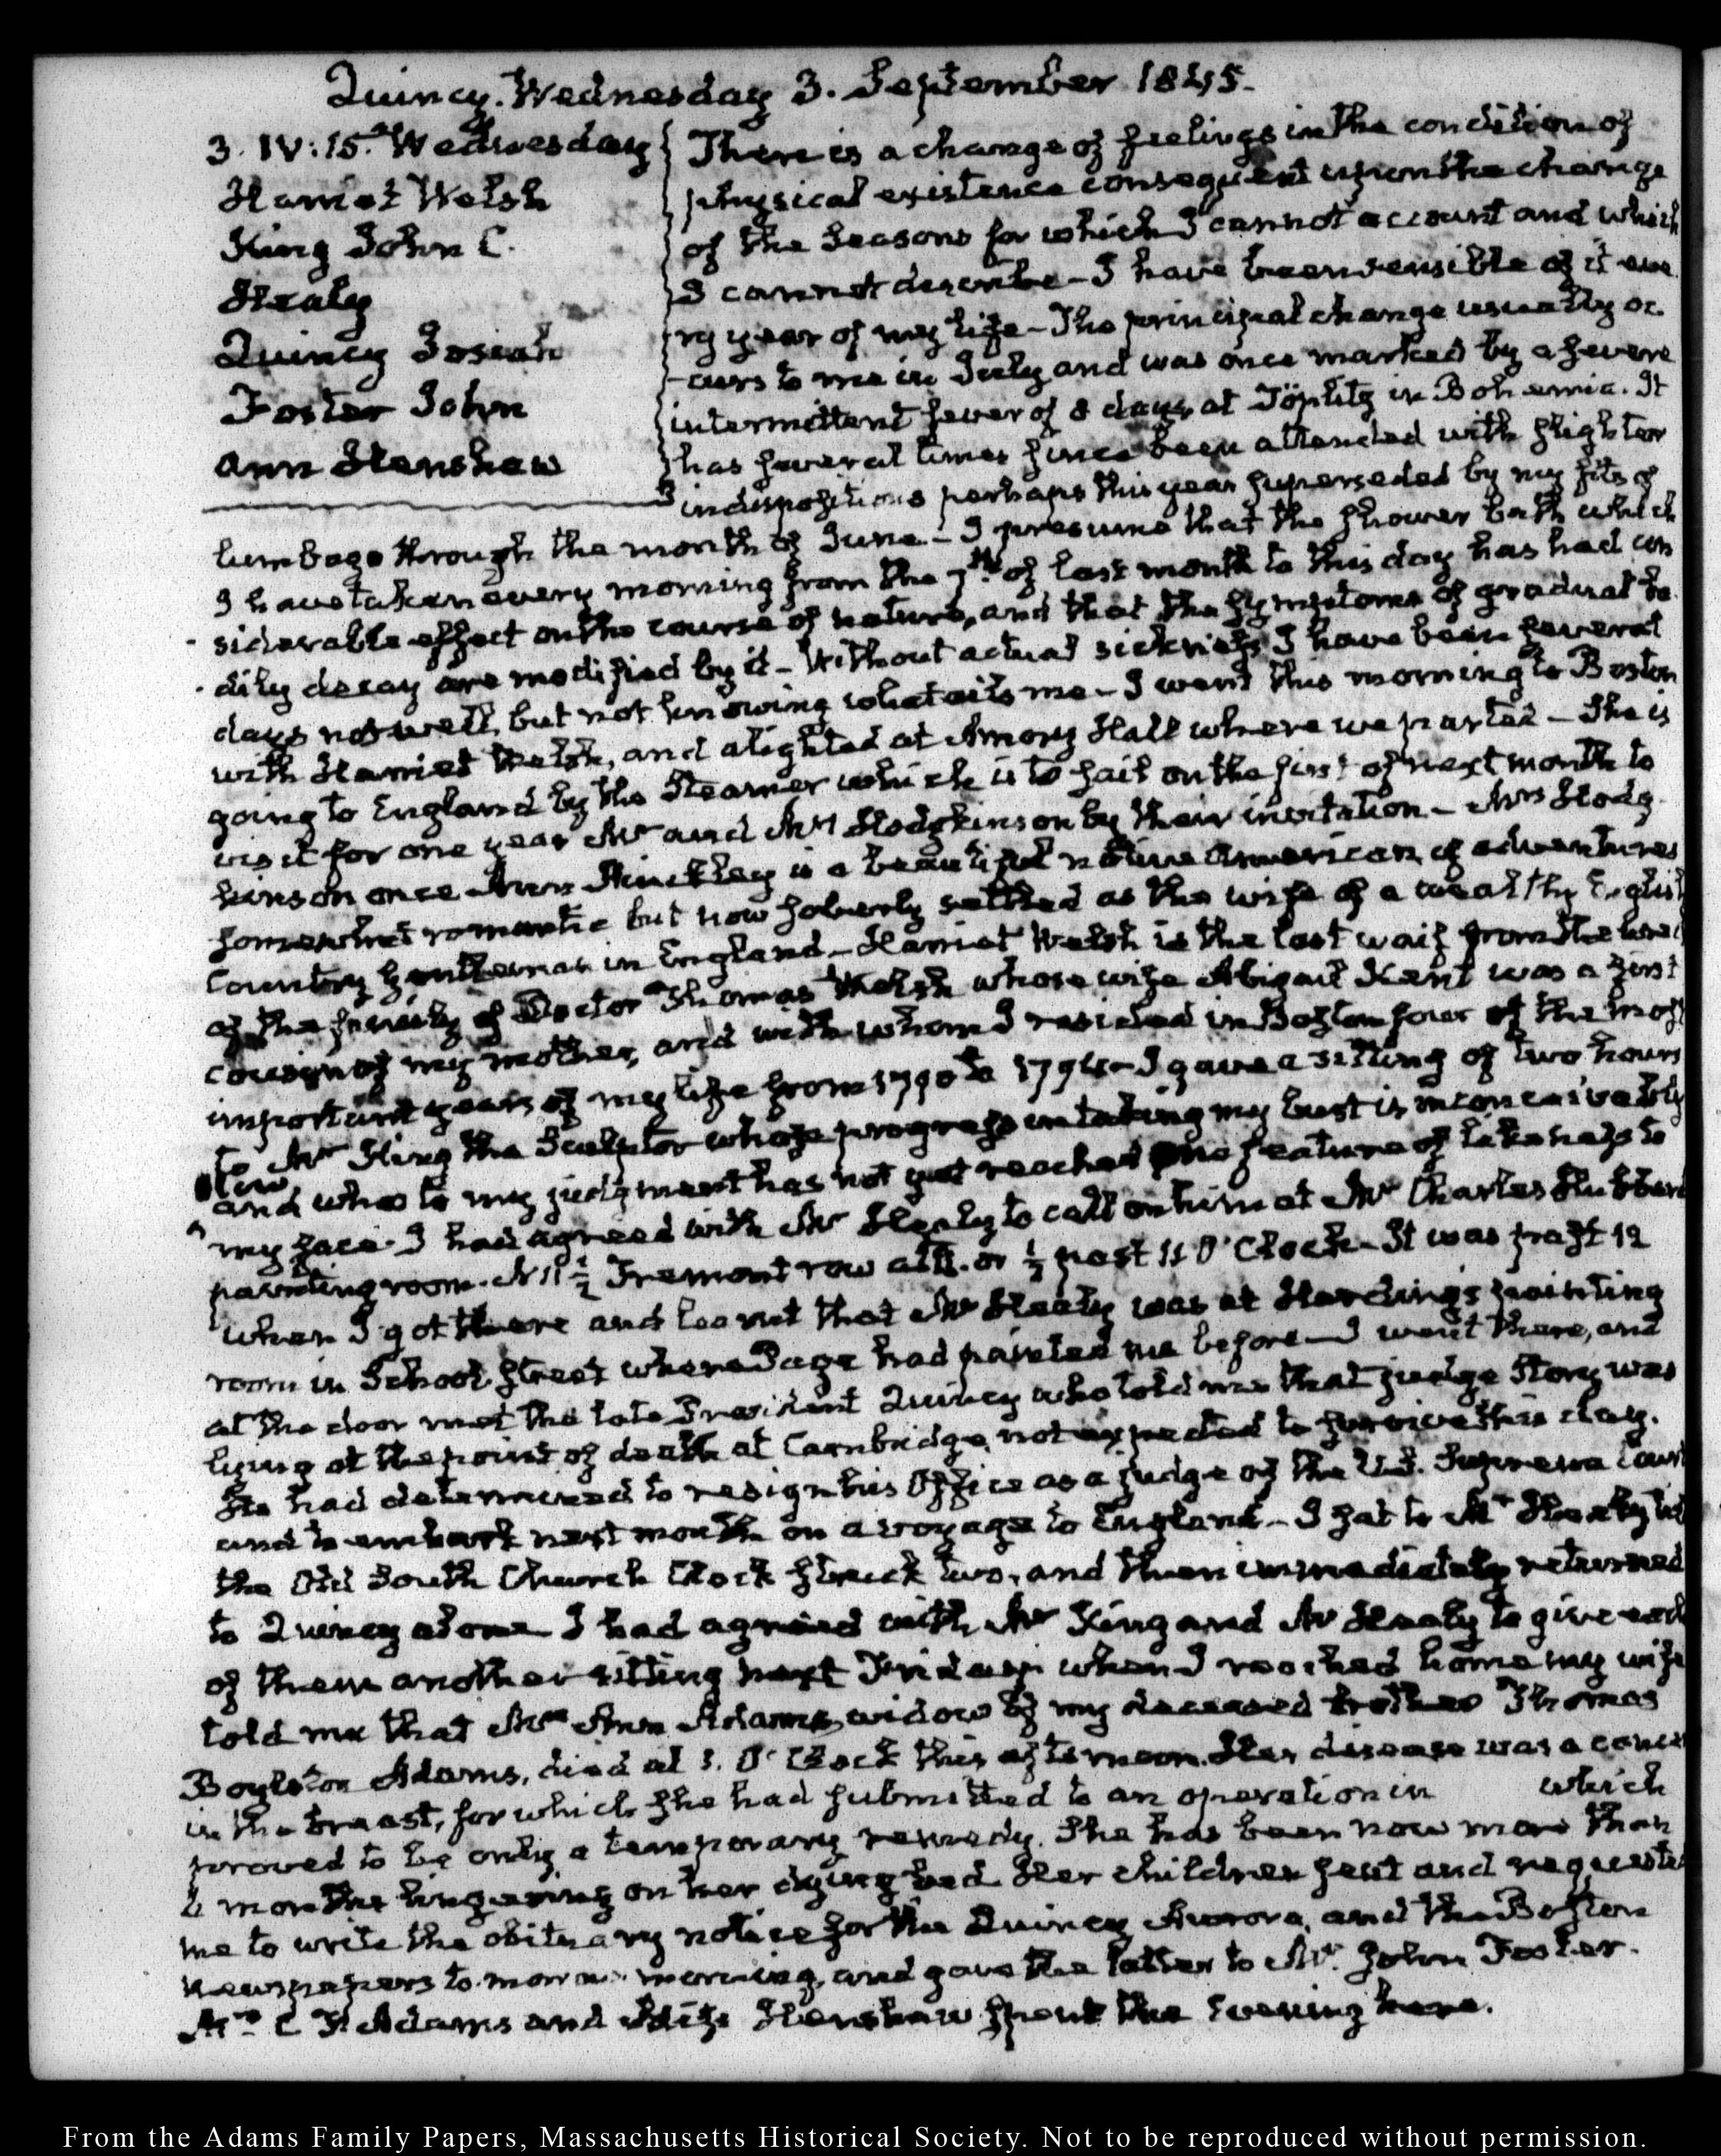 Quincy. Wednesday 3. September 1845.
3. IV:15. Wednesday
Harriet Welsh
King John C.
Healy
Quincy Josiah
Foster John
Ann Henshaw
There is a change of feelings in the condition of
physical existence consequent upon the change
of the Seasons for which I cannot account and which
I cannot describe - I have been sensible of it eve
ry year of my life - The principal change usually oc-
-curs to me in July and was once marked by a severe
intermittent fever of 8 days, at Töplitz in Bohemia. It
has several times since been attended with slighter
indispositions perhaps this year superseded by my fits of
lumbago through the month of June - I presume that the shower bath which
I have taken every morning from the 7th of last month to this day has had con
- siderable effect on the course of nature, and that the symptoms of gradual bo
- dily decay are modified by it - Without actual sickness I have been several
days not well, but not knowing what ails me - I went this morning to Boston
with Harriet Welsh, and alighted at Amory Hall where we parted - She is
going to England by the Steamer which is to sail on the first of next month to
visit for one year Mr and Mrs Hodgkinson by their invitation - Mrs Hodg-
kinson once Ann Hinckley is a beautiful native American, of adventures
somewhat romantic but now soberly settled as the wife of a wealthy English
Country Gentleman in England - Harriet Welsh is the last waif from the
of the family of Doctor Thomas Welsh whose wife Abigail Kent was a first
cousin of my mother, and with whom I resided in Boston four of the most
important years of my life from 1790 to 1794 - I gave a sitting of two hours
to Mr King the Sculptor whose progress in taking my bust is inconceivably
slow,
and who to my judgment has not yet reached one feature of likeness to
my face. I had agreed with Mr Healy to call on him at Mr Charles Hubbard
painting room. N 11 1/2 Tremont row at 11. or 1/2 past 11 O'Clock - It was past 12
when I got there and learnt that Mr Healy was at Harding's painting
room in School Street where Page had painted me before - I went there, and
at the door met the late President Quincy who told me that judge Story was
lying at the point of death at Cambridge, not expected to survive this day.
He had determined to resign his Office as a judge of the U.S. Supreme Court
and to embark next month on a voyage to England - I sat to Mr Healy till
the Old South Church Clock struck two, and then immediately returned
to Quincy alone I had agreed with Mr King and Mr Healy to give each
of them another sitting next Friday. when I reached home my wife
told me that Mrs Ann Adams, widow of my deceased brother Thomas
Boylston Adams, died at 3. O'Clock this afternoon. Her disease was a cancer
in the breast, for which she had submitted to an operation in which
proved to be only a temporary remedy. She has been now more than
months lingering on her dying bed Her children sent and requested
me to write the obituary notice for the Quincy Aurora, and the Boston
newspapers to morrow morning, and gave the latter to Mr. John Foster.
Mrs C F Adams and Miss Henshaw spent the Evening here.
From the Adams Family Papers, Massachusetts Historical Society. Not to be reproduced without permission.